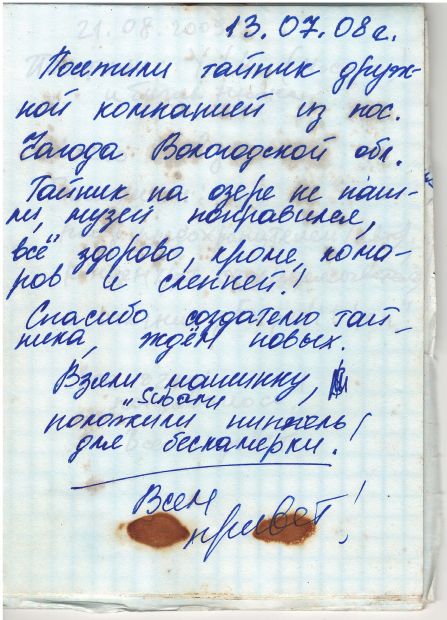 13.07.08г.
Посетили тайник друж-
ной компанией из пос.
Чагода Вологодской обл.
Тайник на озере не наш-
ли, музей понравился,
всё здорово, кроме кома-
ров и слепней!
Спасибо создателю тай-
ника, ждём новых.
Взяли машинку,
"Subaru
положили ниппель
для бескамерки!
Всем
привет!